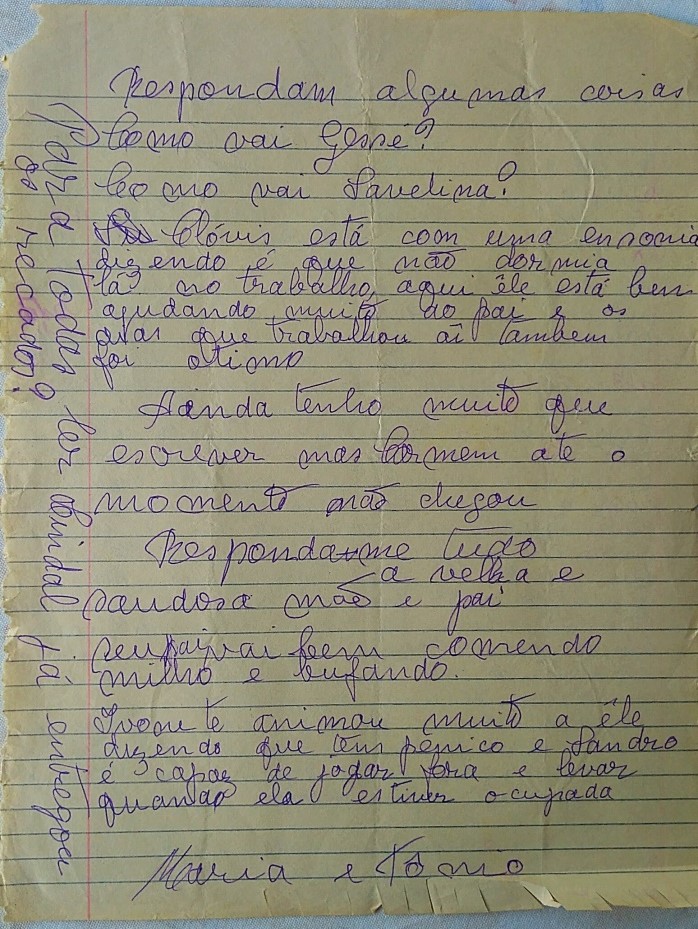 Respondam algumas coisas
Como vai Gessé?
Como vai Savelina?
Clóvis está com uma ensonia
dizendo é que não dormia
lá no trabalho, aqui êle está bem
ajudando muito ao pai e os
dias que trabalhou aí tambem
foi otimo
Ainda tenho muito que
escrever mas Carmem até o
momento não chegou
Respondam-me tudo
a velha e
saudosa mãe e pai
seu pai vai bem comendo
milho e bufando.
Ivonete animou muito a êle
dizendo que tem penico e Sandro
é capaz de jogar fora e levar
quando ela estiver ocupada
Maria e Tonio
Para todas ler já entregou
os recados?